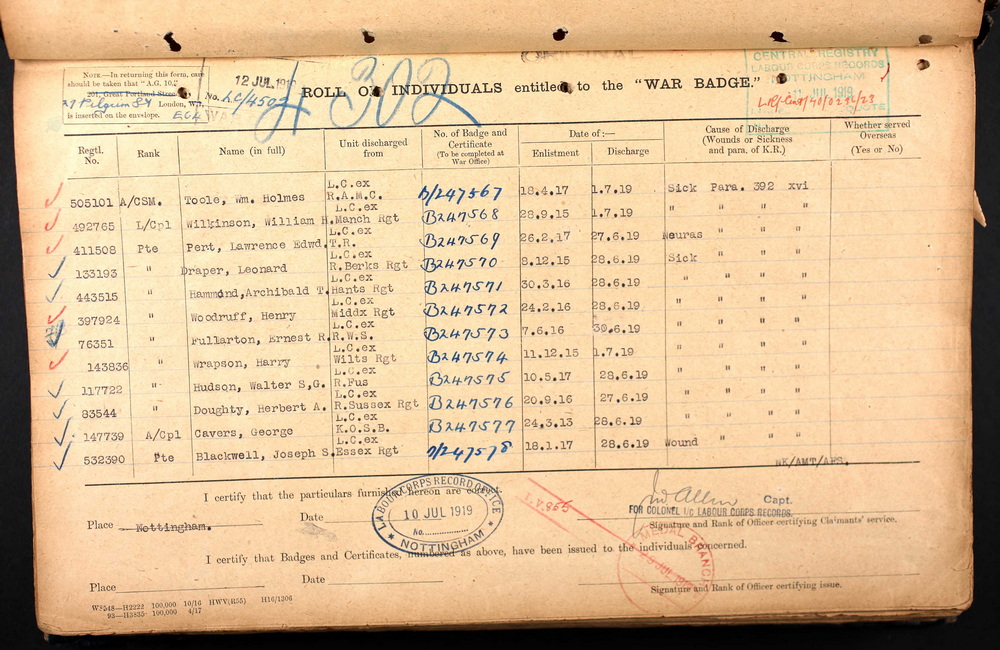 NOTE.—In returning this form, care
should be taken that "A.G. 10,"
201, Great Portland Street
27 Pilgrim St London, W.1,
is inserted on the envelope. EC4
12 JUL 1919
No. LC/4502
302
ROLL OF INDIVIDUALS entitled to the "WAR BADGE."
CENTRAL REGISTRY
LABOUR CORPS RECORDS
NOTTINGHAM
11 JUL 1919
QUOTE
Regtl. No. Rank Name (in full) Unit discharged from No. of Badge and Certificate (To be completed at War Office) Date of:— Enlistment Discharge Cause of Discharge (Wounds or Sickness and para. of K.R.) Whether served Overseas (Yes or No)
L.C.ex
505101 A/CSM. Toole, Wm. Holmes R.A.M.C. B/247567 18.4.17 1.7.19 Sick Para. 392 xvi
L.C.ex
492765 L/Cpl Wilkinson, William H. Manch Rgt B247568 28.9.15 1.7.19 " " "
L.C.ex
411508 Pte Pert, Lawrence Edwd. T.R. B247569 26.2.17 27.6.19 Neuras " "
L.C.ex
133193 " Draper, Leonard R.Berks Rgt B247570 8.12.15 28.6.19 Sick " "
L.C.ex
443515 " Hammond,Archibald T. Hants Rgt B247571 30.3.16 28.6.19 " " "
L.C.ex
397924 " Woodruff, Henry Middx Rgt B247572 24.2.16 28.6.19 " " "
L.C.ex
76351 " Fullarton, Ernest R. R.W.S. B247573 7.6.16 30.6.19 " " "
L.C.ex
143836 " Wrapson, Harry Wilts Rgt B247574 11.12.15 1.7.19 " " "
L.C.ex
117722 " Hudson, Walter S,G. R.Fus B247575 10.5.17 28.6.19 " " "
L.C.ex
83544 " Doughty, Herbert A. R.Sussex Rgt B247576 20.9.16 27.6.19 " " "
L.C.ex
147739 A/Cpl Cavers, George K.O.S.B. B247577 24.3.13 28.6.19 " " "
L.C.ex
532390 Pte Blackwell, Joseph S. Essex Rgt B/247578 18.1.17 28.6.19 Wound " "
WK/AMT/AFS.
I certify that the particulars furnished hereon are correct.
LABOUR CORPS RECORD OFFICE
10 JUL 1919
No.
NOTTINGHAM
Capt.
FOR COLONEL I/c LABOUR CORPS RECORDS.
Place Nottingham. Date
Signature and Rank of Officer certifying Claimants' service.
I certify that Badges and Certificates, numbered as above, have been issued to the individuals concerned.
MEDAL BRANCH
Place Date
Signature and Rank of Officer certifying issue.
W3548—H2222 100,000 10/16 HWV(R55) H16/1306
93—H3835 100,000 4/17